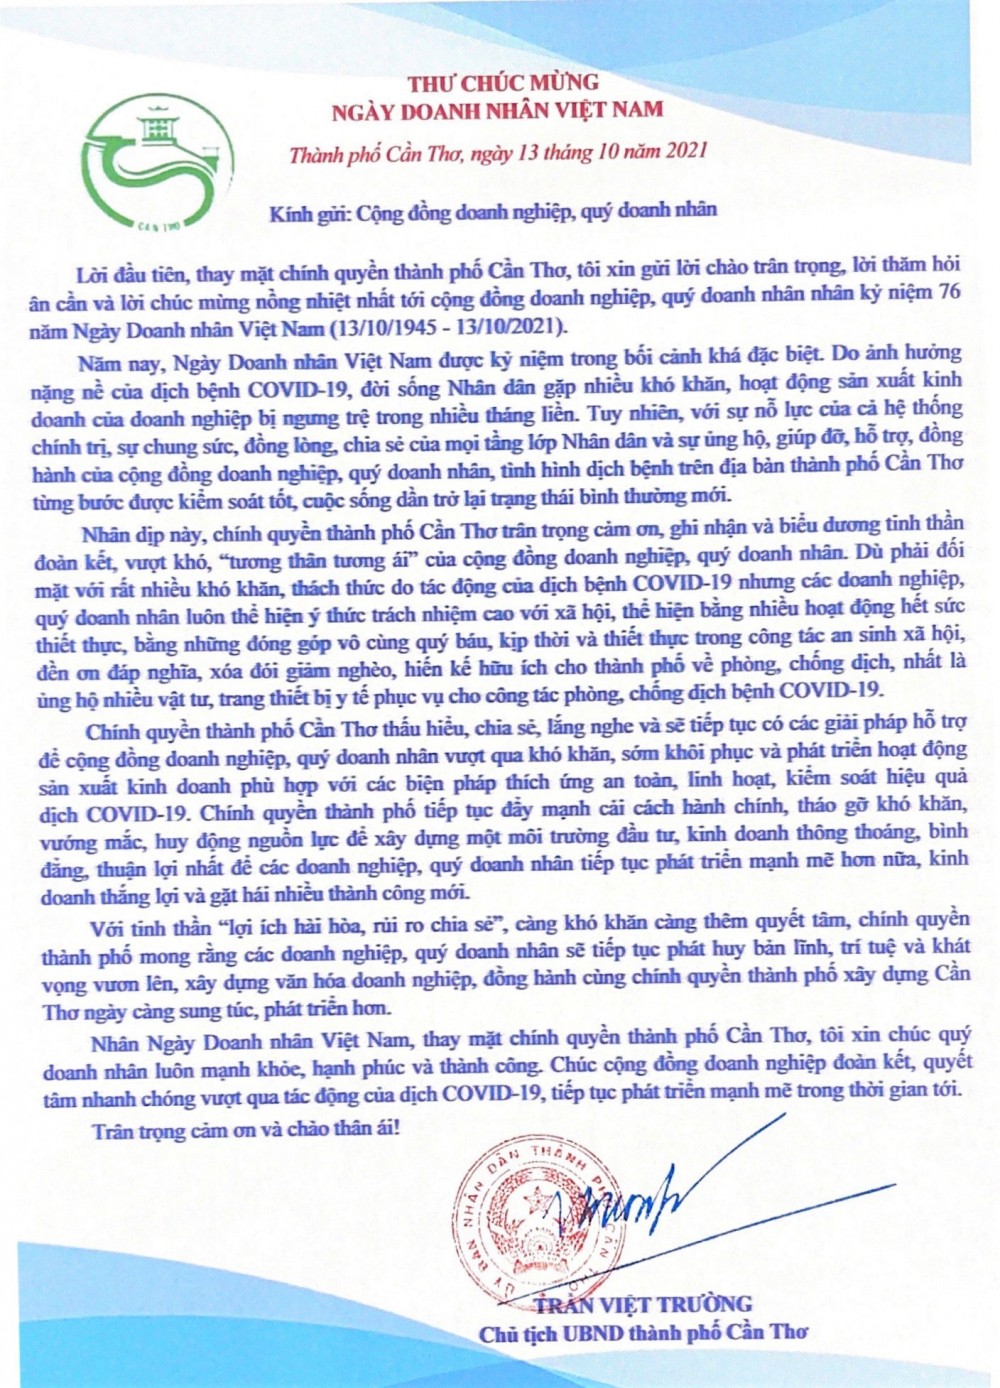 THƯ CHÚC MỪNG
NGÀY DOANH NHÂN VIỆT NAM
Thành phố Cần Thơ, ngày 13 tháng 10 năm 2021
CẦN THƠ
Kính gửi: Cộng đồng doanh nghiệp, quý doanh nhân
Lời đầu tiên, thay mặt chính quyền thành phố Cần Thơ, tôi xin gửi lời chào trân trọng, lời thăm hỏi
ân cần và lời chúc mừng nồng nhiệt nhất tới cộng đồng doanh nghiệp, quý doanh nhân nhân kỷ niệm 76
năm Ngày Doanh nhân Việt Nam (13/10/1945 - 13/10/2021).
Năm nay, Ngày Doanh nhân Việt Nam được kỷ niệm trong bối cảnh khá đặc biệt. Do ảnh hưởng
nặng nề của dịch bệnh COVID-19, đời sống Nhân dân gặp nhiều khó khăn, hoạt động sản xuất kinh
doanh của doanh nghiệp bị ngưng trệ trong nhiều tháng liền. Tuy nhiên, với sự nỗ lực của cả hệ thống
chính trị, sự chung sức, đồng lòng, chia sẻ của mọi tầng lớp Nhân dân và sự ủng hộ, giúp đỡ, hỗ trợ, đồng
hành của cộng đồng doanh nghiệp, quý doanh nhân, tình hình dịch bệnh trên địa bàn thành phố Cần Thơ
từng bước được kiểm soát tốt, cuộc sống dần trở lại trạng thái bình thường mới.
Nhân dịp này, chính quyền thành phố Cần Thơ trân trọng cảm ơn, ghi nhận và biểu dương tinh thần
đoàn kết, vượt khó, “tương thân tương ái” của cộng đồng doanh nghiệp, quý doanh nhân. Dù phải đối
mặt với rất nhiều khó khăn, thách thức do tác động của dịch bệnh COVID-19 nhưng các doanh nghiệp,
quý doanh nhân luôn thể hiện ý thức trách nhiệm cao với xã hội, thể hiện bằng nhiều hoạt động hết sức
thiết thực, bằng những đóng góp vô cùng quý báu, kịp thời và thiết thực trong công tác an sinh xã hội,
đền ơn đáp nghĩa, xóa đói giảm nghèo, hiến kế hữu ích cho thành phố về phòng, chống dịch, nhất là
ủng hộ nhiều vật tư, trang thiết bị y tế phục vụ cho công tác phòng, chống dịch bệnh COVID-19.
Chính quyền thành phố Cần Thơ thấu hiểu, chia sẻ, lắng nghe và sẽ tiếp tục có các giải pháp hỗ trợ
để cộng đồng doanh nghiệp, quý doanh nhân vượt qua khó khăn, sớm khôi phục và phát triển hoạt động
sản xuất kinh doanh phù hợp với các biện pháp thích ứng an toàn, linh hoạt, kiểm soát hiệu quả
dịch COVID-19. Chính quyền thành phố tiếp tục đẩy mạnh cải cách hành chính, tháo gỡ khó khăn,
vướng mắc, huy động nguồn lực để xây dựng một môi trường đầu tư, kinh doanh thông thoáng, bình
đẳng, thuận lợi nhất để các doanh nghiệp, quý doanh nhân tiếp tục phát triển mạnh mẽ hơn nữa, kinh
doanh thắng lợi và gặt hái nhiều thành công mới.
Với tinh thần “lợi ích hài hòa, rủi ro chia sẻ”, càng khó khăn càng thêm quyết tâm, chính quyền
thành phố mong rằng các doanh nghiệp, quý doanh nhân sẽ tiếp tục phát huy bản lĩnh, trí tuệ và khát
vọng vươn lên, xây dựng văn hóa doanh nghiệp, đồng hành cùng chính quyền thành phố xây dựng Cần
Thơ ngày càng sung túc, phát triển hơn.
Nhân Ngày Doanh nhân Việt Nam, thay mặt chính quyền thành phố Cần Thơ, tôi xin chúc quý
doanh nhân luôn mạnh khỏe, hạnh phúc và thành công. Chúc cộng đồng doanh nghiệp đoàn kết, quyết
tâm nhanh chóng vượt qua tác động của dịch COVID-19, tiếp tục phát triển mạnh mẽ trong thời gian tới.
Trân trọng cảm ơn và chào thân ái!
ỦY BAN NHÂN DÂN THÀNH PHỐ CẦN THƠ
TRẦN VIỆT TRƯỜNG
Chủ tịch UBND thành phố Cần Thơ